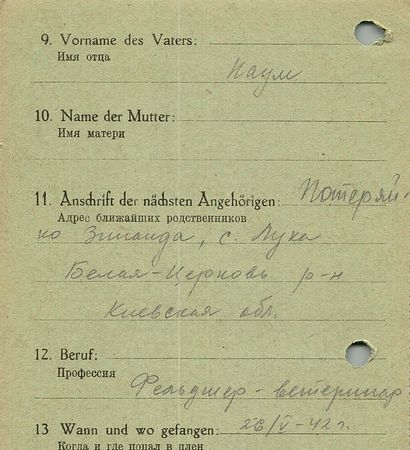 9. Vorname des Vaters:
Имя отца
Наум
10. Name der Mutter:
Имя матери
11. Anschrift der nächsten Angehörigen: Потеряй-
Адрес ближайших родственников
ко Зинаида, с. Лука
Белая-Церковь р-н
Киевская обл.
12. Beruf:
Профессия
Фельдшер-ветеринар
13 Wann und wo gefangen: 26/V-42 г.
Когда и где попал в плен